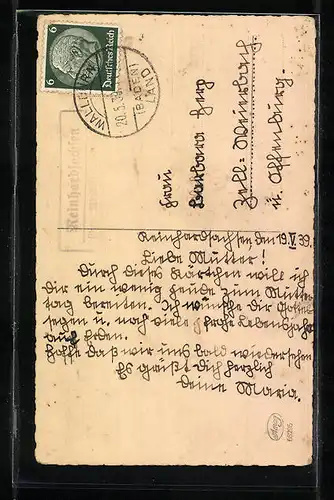 6 Deutsches Reich 6
20.5.39
(BADEN)
LAND
Reinhardsachsen
Frau
Barbara Herp
Zell-Weierbach
b. Offenburg.
Reinhardsachsen den 19.V.39.
Liebe Mutter!
Durch dieses Kärtchen will ich
dir ein wenig Freude zum Mutter
tag bereiten. Ich wünsche dir Gottes
segen u. noch viele frohe Lebensjahre
auf Erden.
Hoffe daß wir uns bald wiedersehen
Es grüßt Dich herzlich
deine Maria.